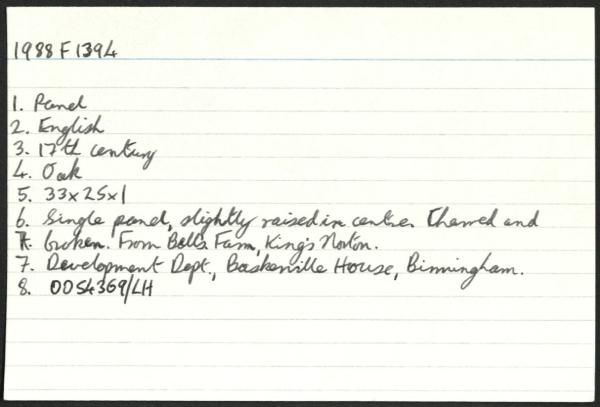 1988 F 1394
1. Panel
2. English
3. 17th century
4. Oak
5. 33x25x1
6. Single panel, slightly raised in centre. Charred and
7. broken. From Bells Farm, King's Norton.
7. Development Dept., Baskerville House, Birmingham.
8. 00S4369/LH